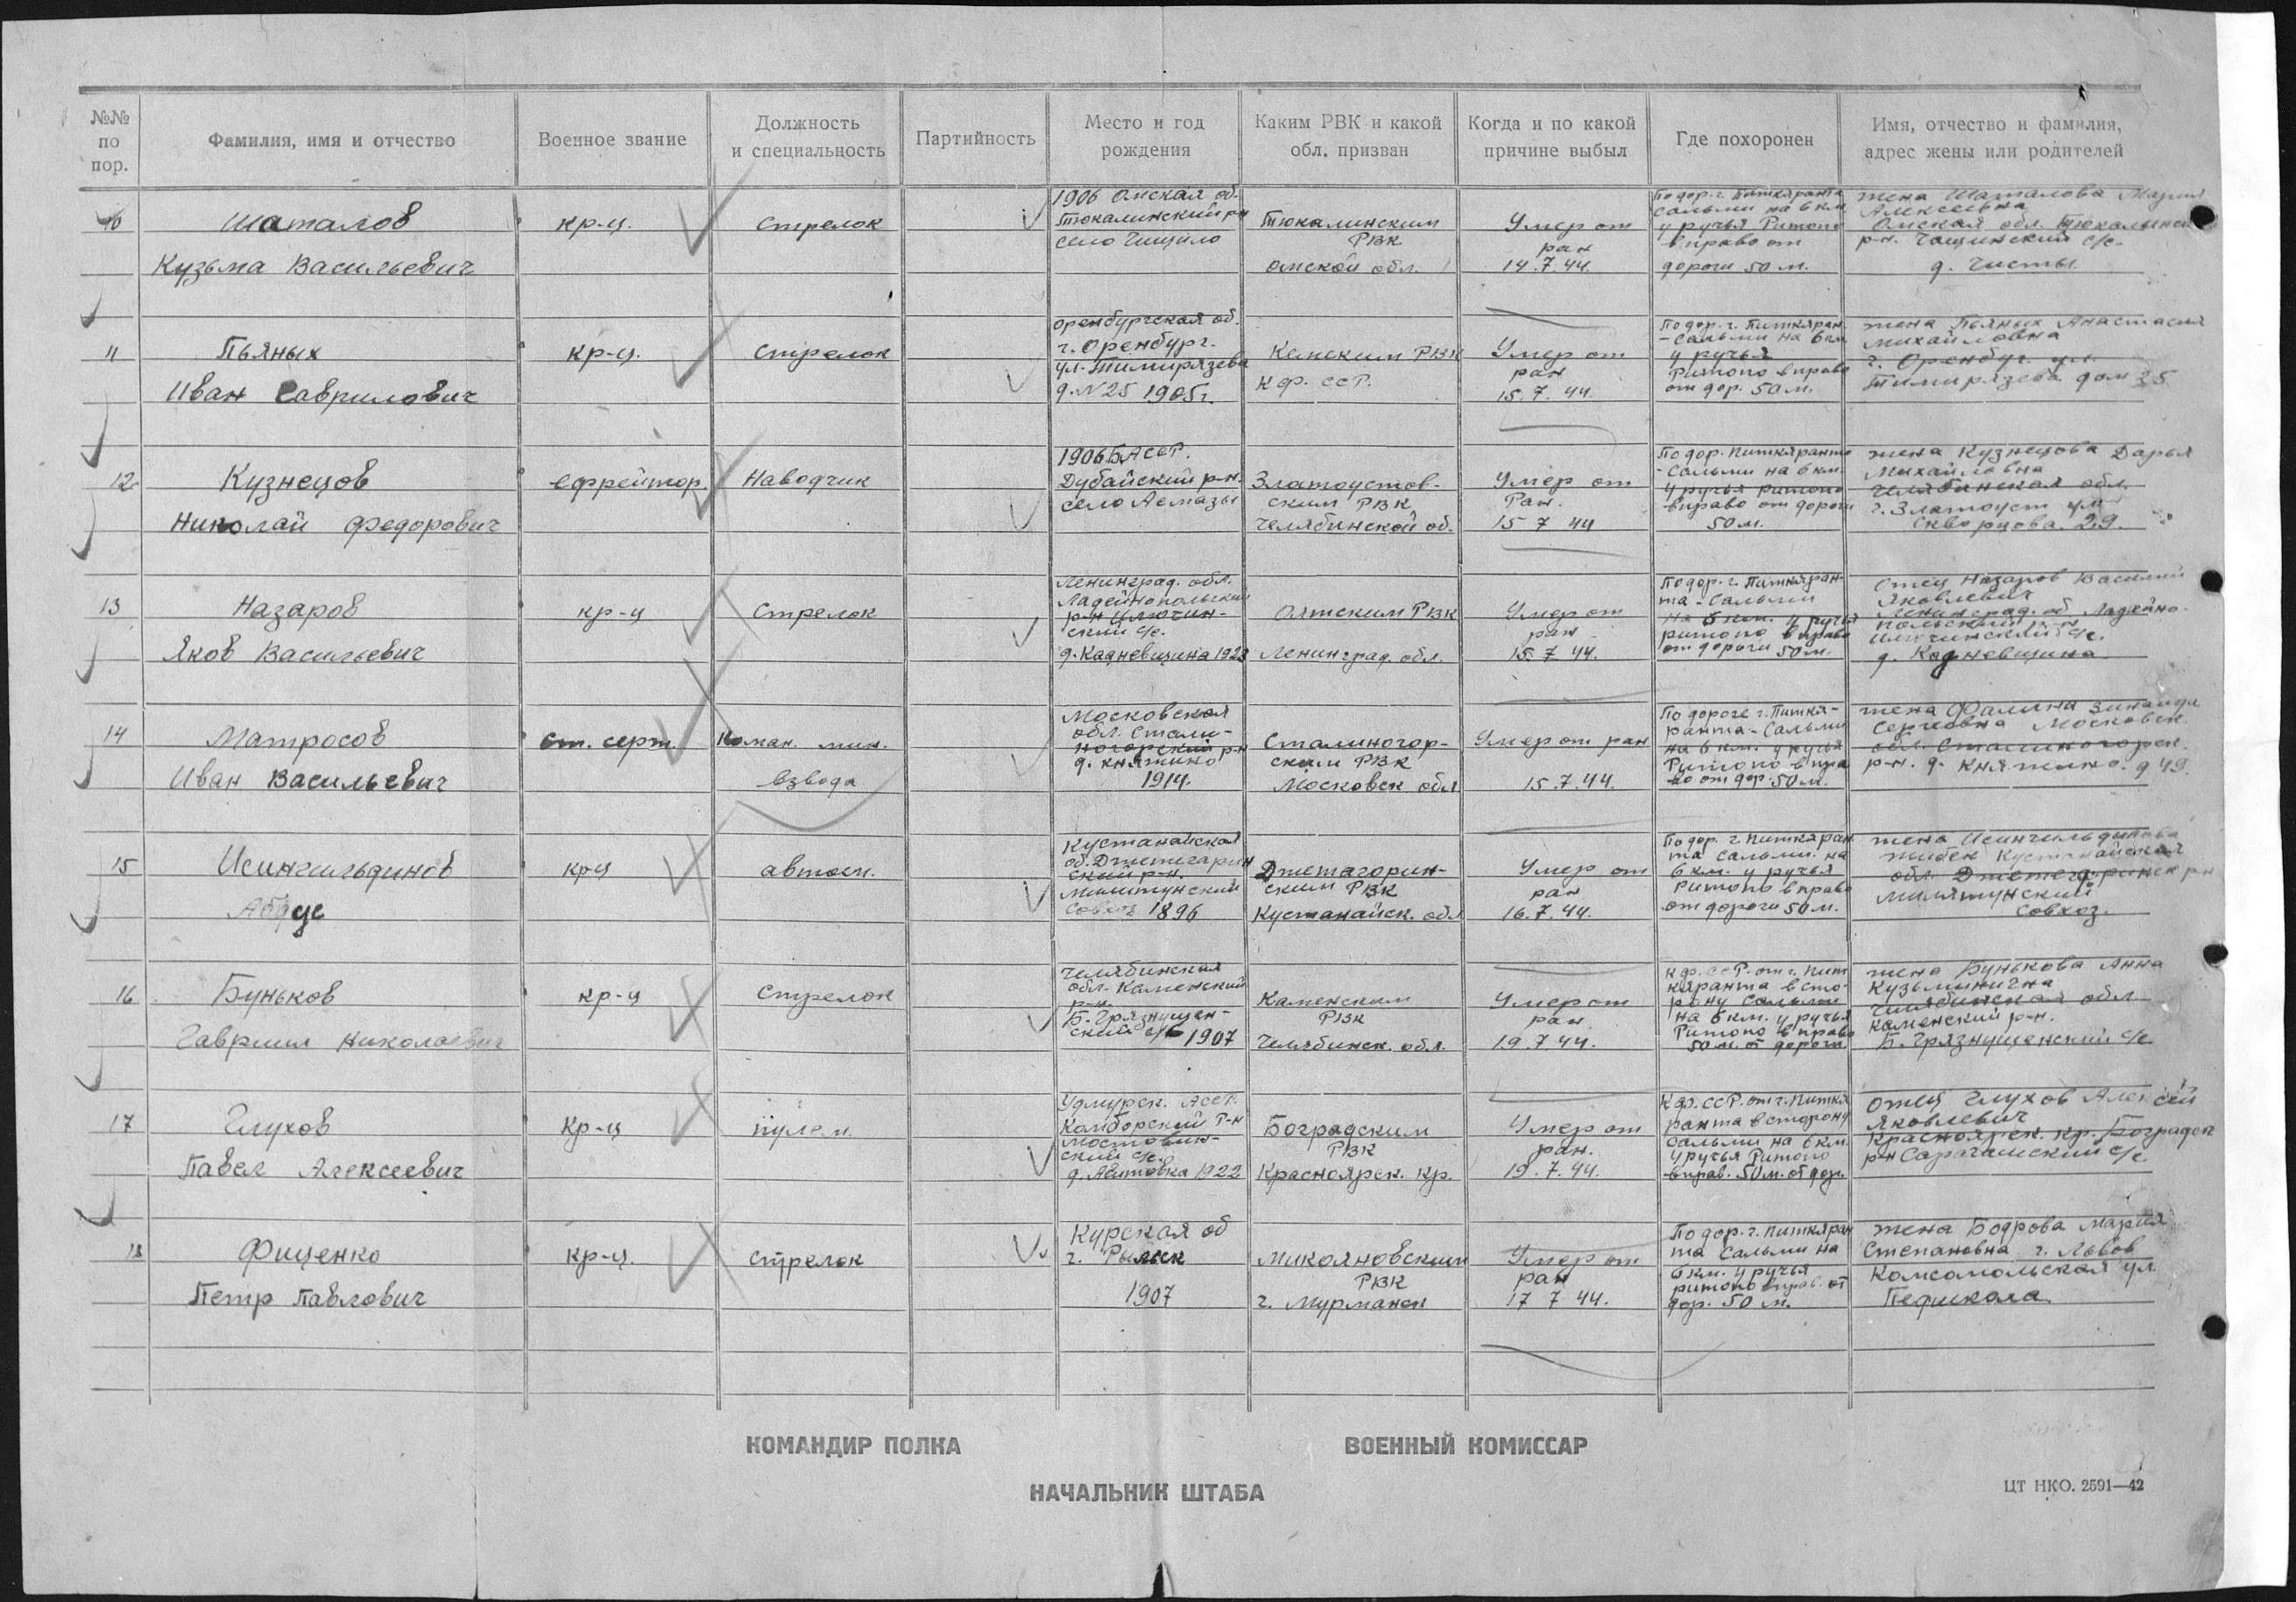 №№ по пор.
Фамилия, имя и отчество
Военное звание
Должность и специальность
Партийность
Место и год рождения
Каким РВК и какой обл. призван
Когда и по какой причине выбыл
Где похоронен
Имя, отчество и фамилия, адрес жены или родителей
10
Шаталов
Кузьма Васильевич
кр-ц.
Стрелок
1906 Омская об.
Тюкалинский рн
село
Тюкалинским
РВК
Омской обл.
Умер от
ран
14.7.44.
По дор. г. Питкяранта
Сальми на 6 км
у ручья Ритопо
вправо от
дороги 50 м.
жена Шаталова Мария
Алексеевна
Омская обл. Тюкалинск
р-н. с/с.
д. Чисты
11
Пьяных
Иван Гаврилович
кр-ц.
Стрелок
Оренбургская об.
г. Оренбург.
ул. Тимирязева
д. N 25 1905 г.
Кемским РВК
К.Ф. ССР.
Умер от
ран
15.7.44.
По дор. г. Питкяран
-Сальми на 6 км
у ручья
Ритопо вправо
от дор. 50 м.
жена Пьяных Анастасия
Михайловна
г. Оренбург. ул.
Тимирязева дом 25
12
Кузнецов
Николай Федорович
ефрейтор.
Наводчик
1906 БАССР.
Дубайский р-н.
село Асмазы
Златоустов-
ским РВК
Челябинской об.
Умер от
Ран.
15 7 44
По дор. Питкяранто
-Сальми на 6 км.
у ручья ритопо
вправо от дороги
50 м.
жена Кузнецова Дарья
Михайловна
Челябинская обл.
г. Златоуст ул
Скворцова. 29.
13
Назаров
Яков Васильевич
кр-ц
Стрелок
Ленинград. обл.
Ладейнопольский
р-н Илючин-
ский с/с.
д. Кадневщина 1923
Оятским РВК
Ленинград. обл.
Умер от
ран
15.7 44.
По дор. г. Питкяран-
та - Сальми
на 6 км. у ручья
ритопо вправо
от дороги 50 м.
Отец Назаров Василий
Яковлевич
Ленинград. об Ладейно-
польский р-н
Илючинский с/с.
д. Кадневщина
14
Матросов
Иван Васильевич
Ст. серж.
Коман. мин.
взвода
Московская
обл. Стали-
ногорский р-н
д. Княгино
1914.
Сталиногор-
ским РВК
Московск обл
Умер от ран
15.7.44.
По дороге г. Питкя-
ранта - Сальми
на 6 км. у ручья
Ритопо впра
во от дор. 50 м.
жена Фалина Зинаида
Сергеевна Московск.
обл. Сталиногорск.
р-н. д. Княгино. д 49.
15
Исингильдинов
кр-ц
Кустанайская
об. Джетегарин
ский р-н.
Милютунский
Совхоз 1896
Джетагорин-
ским РВК
Кустанайск. обл
Умер от
ран
16.7.44.
По дор. г. Питкяран
та Сальми на
6 км. у ручья
Ритопо вправо
от дороги 50 м.
жена Исингильдинова
Кустанайская
обл. Джетегоринск рн
Милятунский
Совхоз.
16
Буньков
Гавриил Николаевич
кр-ц
Стрелок
Челябинская
обл. Каменский
р-н.
Б. Грязнущен-
ский с/с 1907
Каменским
РВК
Челябинск. обл.
Умер от
ран.
19.7 44.
К.ф. ССР. от г. Пит
кяранта в сто-
рону Сальми
на 6 км. у ручья
Ритопо вправо
50 м. от дороги
жена Бунькова Анна
Кузьминична
Челябинская обл
Каменский р-н.
Б. Грязнущенский с/с
17
Глухов
Павел Алексеевич
кр-ц
пулем.
Удмурск. АССР.
Камборский Р-н
Мостовин-
ский с/с.
д. Абитовка 1922
Боградским
РВК
Красноярск. кр.
Умер от
ран.
19.7.44.
К.ф. ССР. от г. Питкя
ранта в сторону
Сальми на 6 км.
у ручья Ритопо
вправ. 50 м. от дор.
отец Глухов Алексей
Яковлевич
Красноярск. кр. Боградск
р-н Сарагашский с/с.
18
Фиценко
Петр Павлович
кр-ц.
Стрелок
Курская об
г. Рыльск
1907
Микояновским
РВК
г. Мурманск
Умер от
ран
17 7 44.
По дор. г. Питкяран
та Сальми на
6 км. у ручья
ритопо вправ. от
дор. 50 м.
жена Бодрова Мария
Степановна г. Львов
Комсомольская ул.
Педшкола
КОМАНДИР ПОЛКА
ВОЕННЫЙ КОМИССАР
НАЧАЛЬНИК ШТАБА
ЦТ НКО. 2591—42